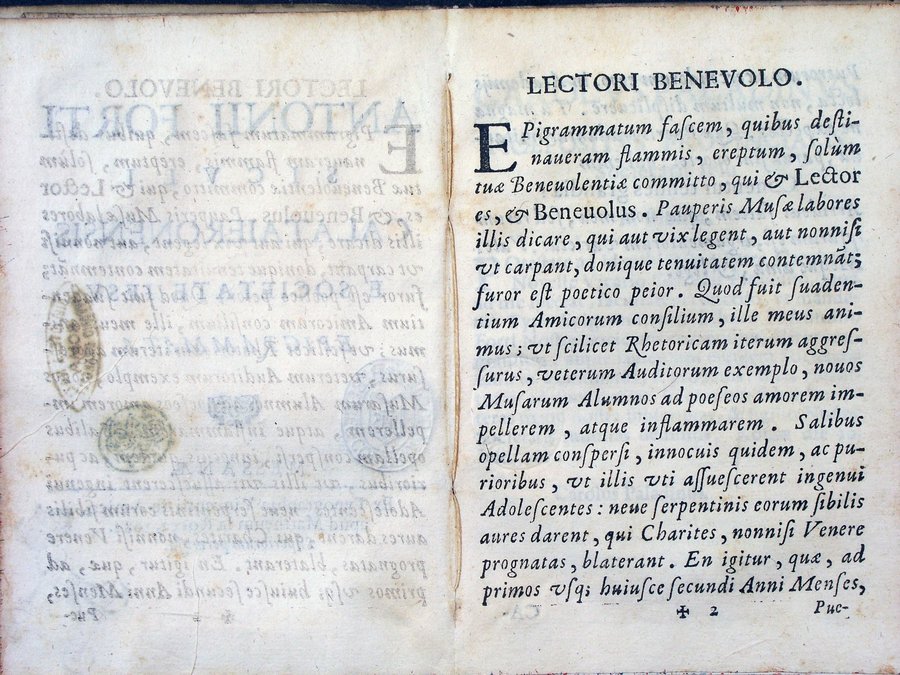 LECTORI BENEVOLO.
EPigrammatum fascem, quibus desti-
naueram flammis, ereptum, solùm
tuæ Beneuolentiæ committo, qui & Lector
es, & Beneuolus. Pauperis Musæ labores
illis dicare, qui aut vix legent, aut nonnisi
vt carpant, donique tenuitatem contemnãt;
furor est poetico peior. Quod fuit suaden-
tium Amicorum consilium, ille meus ani-
mus; vt scilicet Rhetoricam iterum aggres-
surus, veterum Auditorum exemplo, nouos
Musarum Alumnos ad poeseos amorem im-
pellerem, atque inflammarem. Salibus
opellam conspersi, innocuis quidem, ac pu-
rioribus, vt illis vti assuescerent ingenui
Adolescentes: neue serpentinis eorum sibilis
aures darent, qui Charites, nonnisi Venere
prognatas, blaterant. En igitur, quæ, ad
primos vsq; huiusce secundi Anni Menses,
✠ 2 Puc-